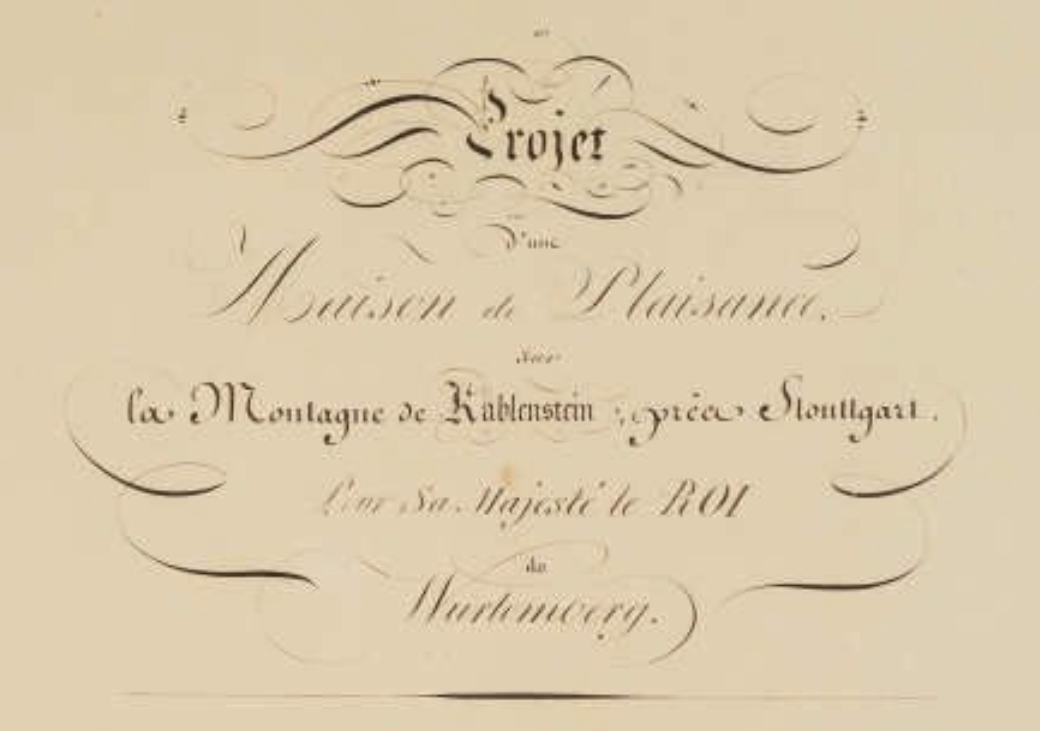 Projet
d'une
Maison de Plaisance.
sur
la Montagne de Kahlenstein, près Stouttgart.
Pour Sa Majesté le ROI
de
Wurtemberg.